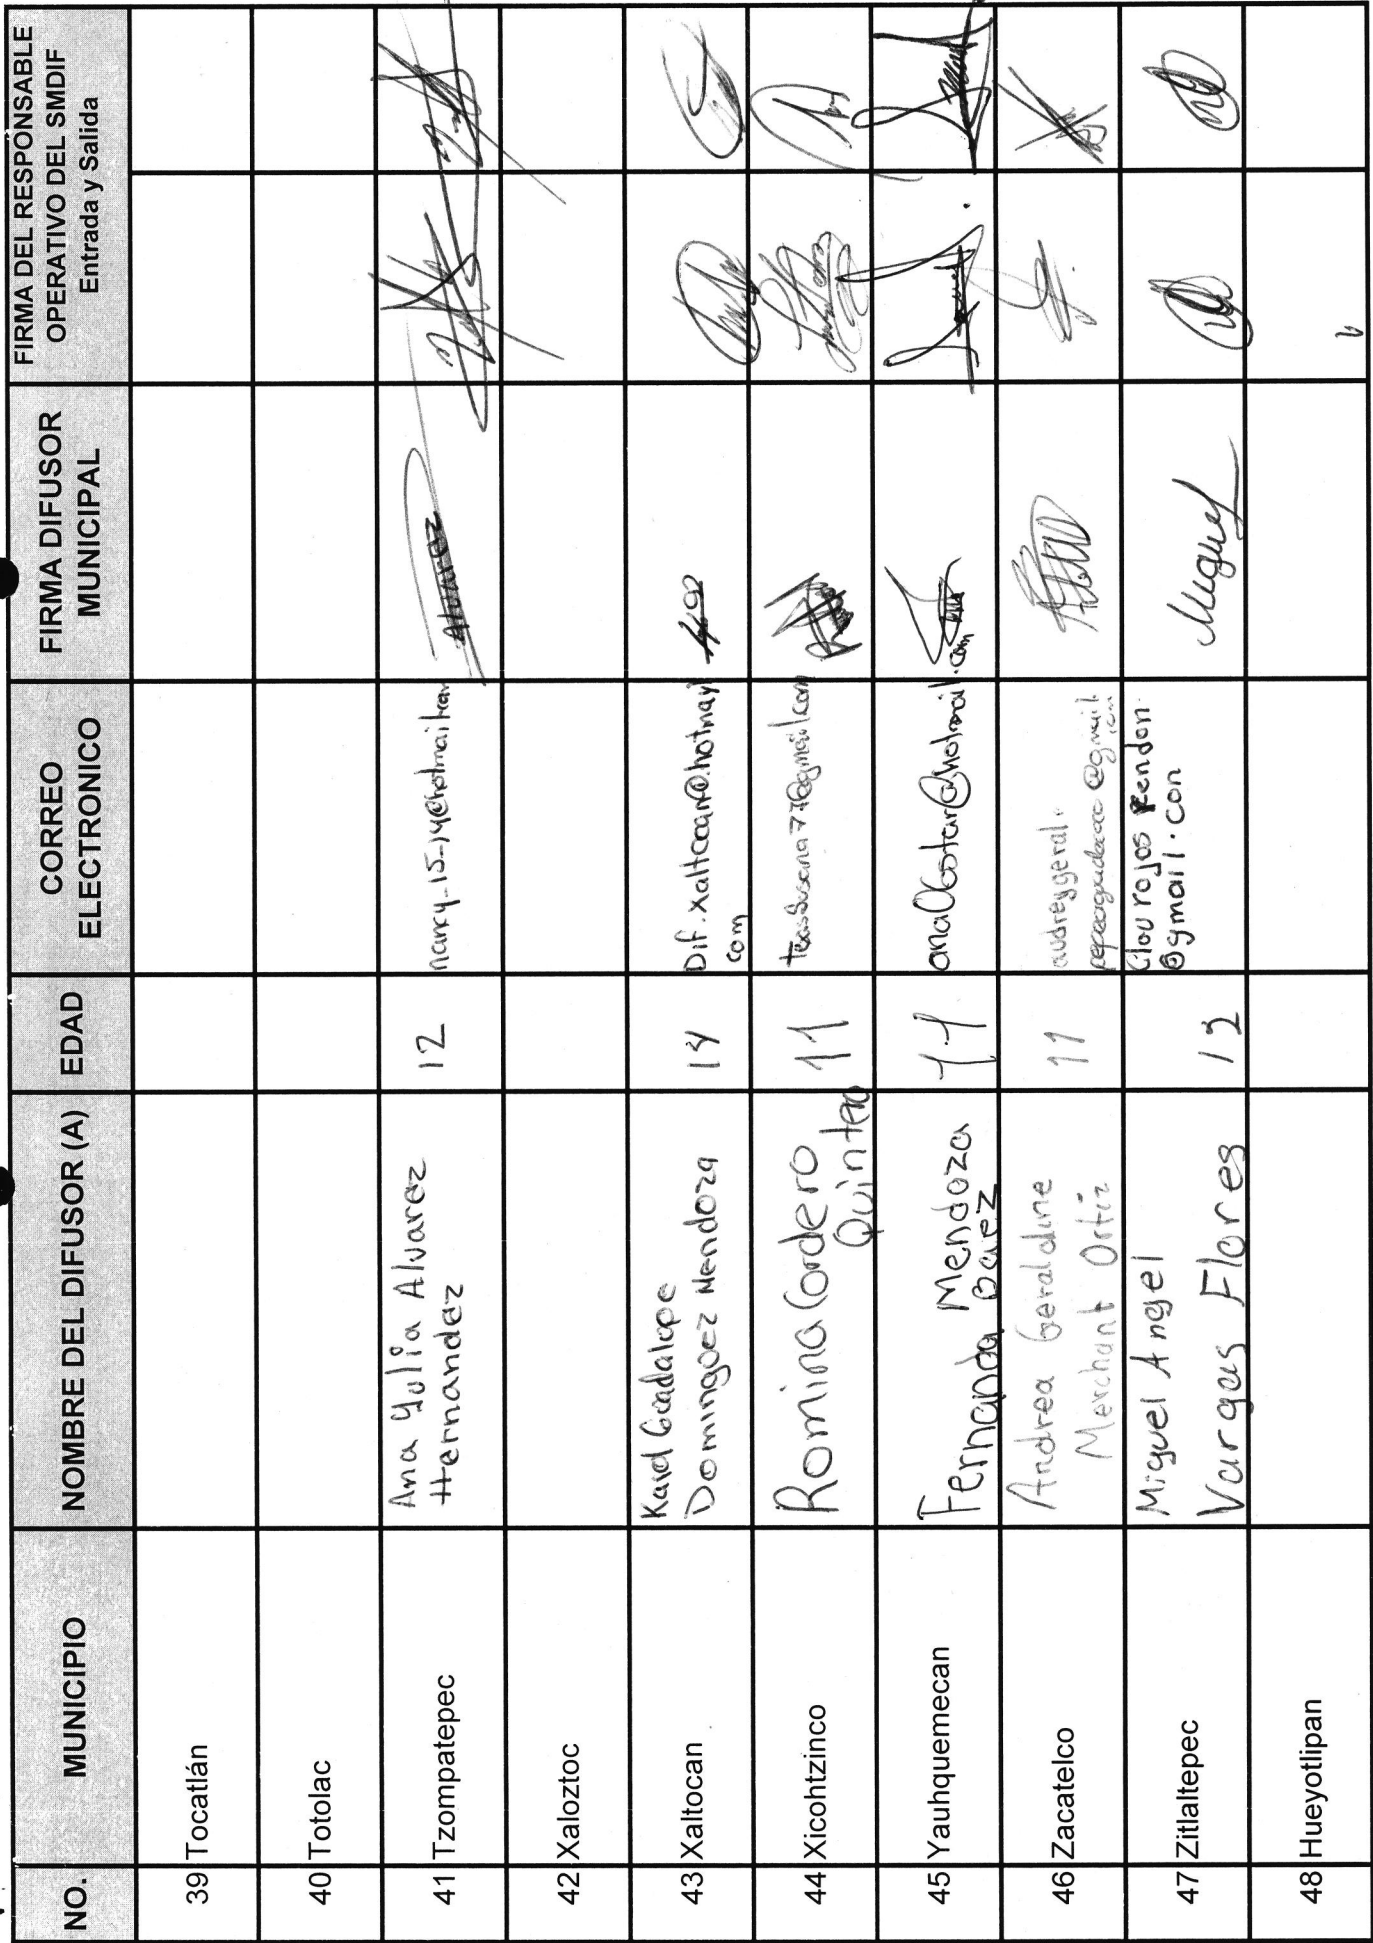 NO.
MUNICIPIO
NOMBRE DEL DIFUSOR (A)
EDAD
CORREO
ELECTRONICO
FIRMA DIFUSOR
MUNICIPAL
FIRMA DEL RESPONSABLE
OPERATIVO DEL SMDIF
Entrada y Salida
39 Tocatlán
40 Totolac
41 Tzompatepec
Ana Yulia Alvarez
Hernandez
12
nancy_15_14@hotmail.com
Alvarez
42 Xaloztoc
43 Xaltocan
Karol Guadalupe
Dominguez Mendoza
Dif.xaltocan@hotmayl
com
44 Xicohtzinco
Romina Cordero
Quintero
11
45 Yauhquemecan
Fernanda Mendoza
Baez
11
46 Zacatelco
Andrea Geraldine
Merchant Ortiz
11
audreygeral.
47 Zitlaltepec
Miguel Angel
Vargas Flores
12
rojos Rendon.
@gmail.con
Miguel
48 Hueyotlipan